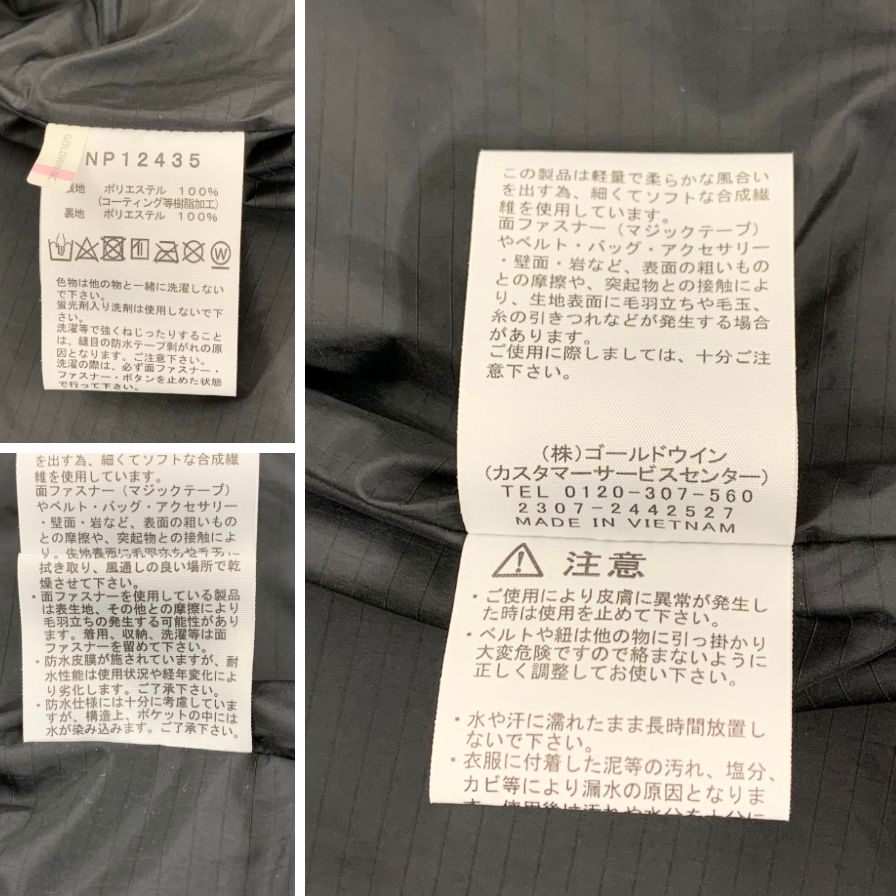 GOLDWIN
NP12435
表地 ポリエステル 100%
(コーティング等樹脂加工)
裏地 ポリエステル 100%
W
色物は他の物と一緒に洗濯しない
で下さい。
蛍光剤入り洗剤は使用しないで下
さい。
洗濯等で強くねじったりすること
は、縫目の防水テープ剥がれの原
因となります。ご注意下さい。
洗濯の際は、必ず面ファスナー・
ファスナー・ボタンを止めた状態
で行って下さい。
を出す為、細くてソフトな合成繊
維を使用しています。
面ファスナー(マジックテープ)
やベルト・バッグ・アクセサリー
・壁面・岩など、表面の粗いもの
との摩擦や、突起物との接触によ
り、生地表面に毛羽立ちや毛玉、
拭き取り、風通しの良い場所で乾
燥させて下さい。
・面ファスナーを使用している製品
は表生地、その他との摩擦により
毛羽立ちの発生する可能性があり
ます。着用、収納、洗濯等は面
ファスナーを留めて下さい。
・防水皮膜が施されていますが、耐
水性能は使用状況や経年変化によ
り劣化します。ご了承下さい。
・防水仕様には十分に考慮していま
すが、構造上、ポケットの中には
水が染み込みます。ご了承下さい。
この製品は軽量で柔らかな風合い
を出す為、細くてソフトな合成繊
維を使用しています。
面ファスナー(マジックテープ)
やベルト・バッグ・アクセサリー
・壁面・岩など、表面の粗いもの
との摩擦や、突起物との接触によ
り、生地表面に毛羽立ちや毛玉、
糸の引きつれなどが発生する場合
があります。
ご使用に際しましては、十分ご注
意下さい。
(株)ゴールドウイン
(カスタマーサービスセンター)
TEL 0120-307-560
2307-2442527
MADE IN VIETNAM
注意
・ご使用により皮膚に異常が発生し
た時は使用を止めて下さい。
・ベルトや紐は他の物に引っ掛かり
大変危険ですので絡まないように
正しく調整してお使い下さい。
・水や汗に濡れたまま長時間放置し
ないで下さい。
・衣服に付着した泥等の汚れ、塩分、
カビ等により漏水の原因となりま
す。使用後は汚れや水分を十分に